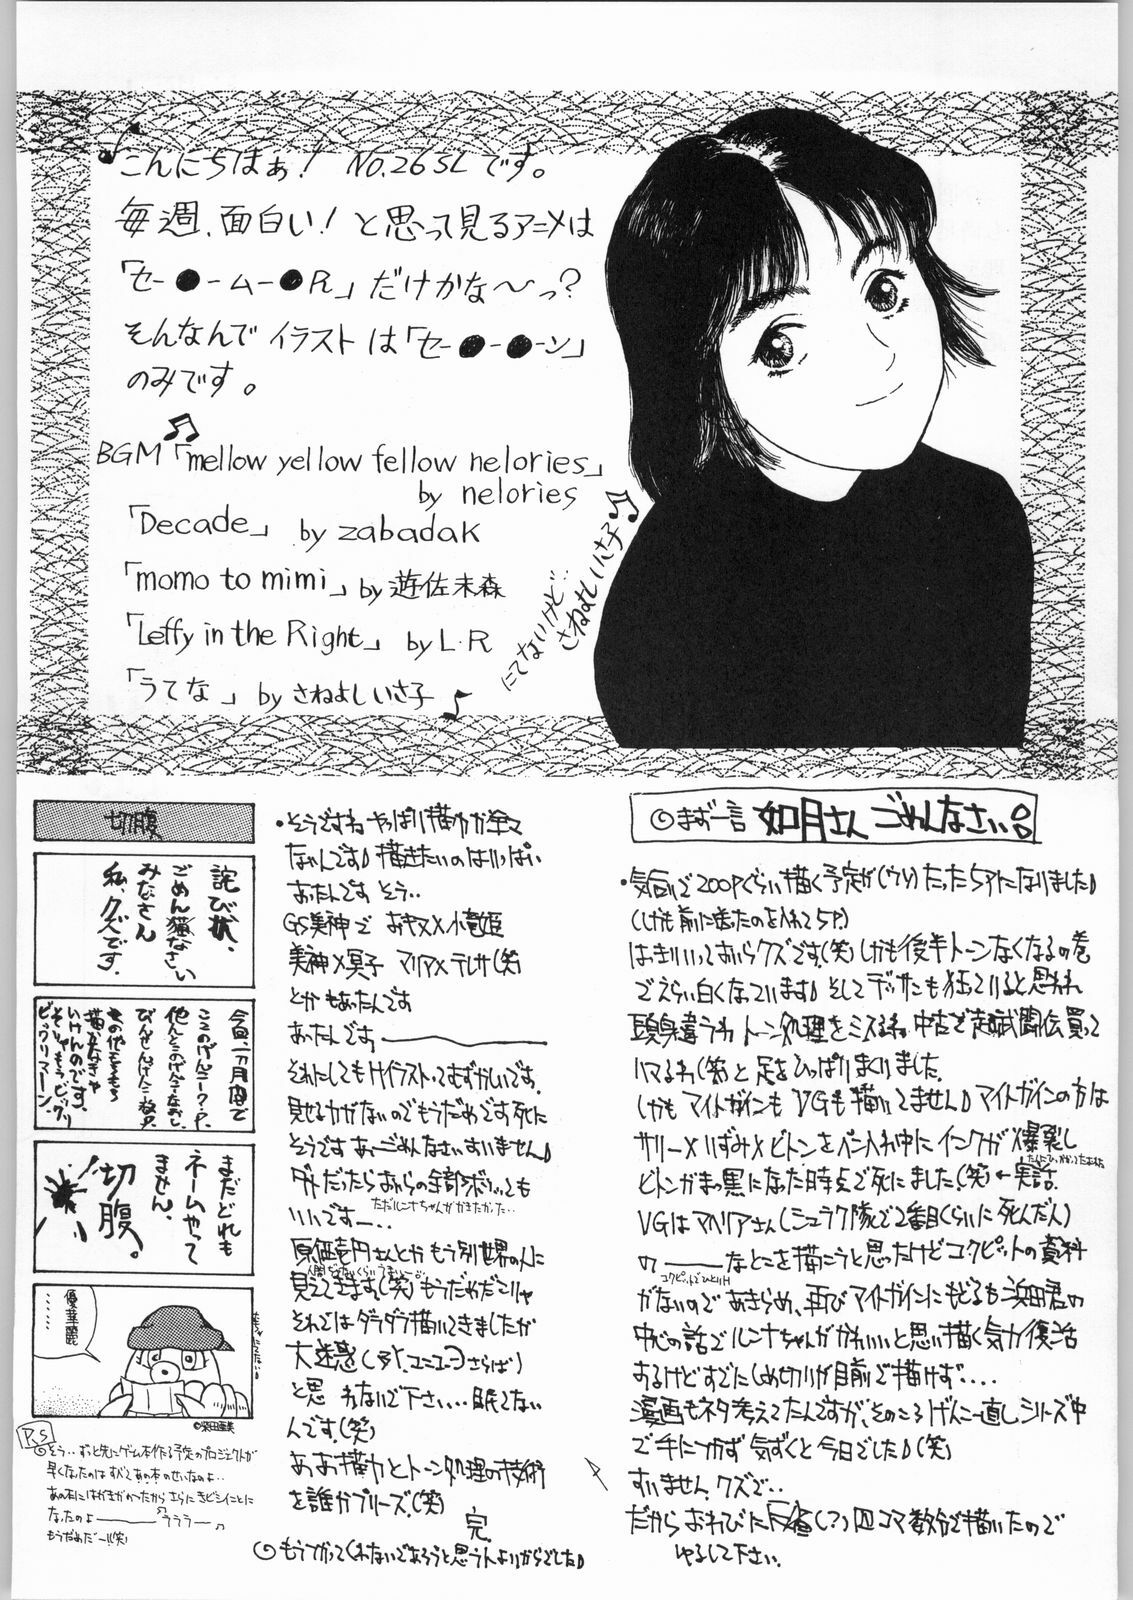 こんにちはぁ! NO.26 SLです。
毎週、面白い!と思って見るアニメは
「セー●ームー●R」だけかな〜っ?
そんなんでイラストは「セー●ー●ーン」
のみです。
BGM「mellow yellow fellow nelories」
by nelories
「Decade」 by zabadak
「momo to mimi」by 遊佐未森
「Leffy in the Right」 by L・R
「うてな」 by さねよしいさ子
にてないけど…
さねよしいさ子
◎まず一言 如月さん ごめんなさい
・気合いで200Pぐらい描く予定が(ウソ)たった5Pになりました
(しかも前に送ったのを入れて5P)
はっきりいっておいらクズです。(笑)しかも後半トーンなくなるの巻
でえらい白くなっています そしてデッサンも狂っていると思われ
頭身違うわ トーン処理をミスるわ 中古で超武闘伝買って
ハマるわ(笑)と 足をひっぱりまくりました。
しかも マイトガインも VGも描いてません マイトガインの方は
サリー×いずみ×ビトンをペン入れ中にインクが爆裂し
ビトンがまっ黒になった時点で死にました。(笑)←実話
VGはマヘリアさん(シュラク隊で2番目くらいに死んだ人)
の――なとこを描こうと思ったけどコクピットの資料
コクピットでひとりH
がないのであきらめ、再びマイトガインにもどるも浜田君の
中心の話でルンナちゃんがかわいいと思い描く気力復活
するけどすでにしめ切りが目前で描けず‥‥
漫画もネタ考えてたんですが、そのころげんこー直しシリーズ中
で手につかず 気ずくと今日でした(笑)
すいません。クズで‥
だからおわびに反省(?)四コマ数分で描いたので
ゆるして下さい。
・そうですね やっぱり描力が全て
なんです 描きたいのはいっぱい
あったんです そう‥
GS美神で おキヌ×小竜姫
美神×冥子 マリア×テレサ(笑)
とかもあったんです
あったんです――
それにしてもHイラストってむずかしいです。
見せる力がないのでもうだめです 死に
そうです あーごめんなさい すいません
ダメだったらおいらの全部ボツっても
いいですー‥
ただルンナちゃんがかきたかった‥
原価壱円さんとか もう別世界の人に
見えてきます。(笑)もうだめだこりゃ
それではダラダラ描いてきましたが
大迷惑
と思われないで下さい‥‥眠くない
んです。(笑)
ああ描力とトーン処理の技術
を誰かプリーズ。(笑)
完
切腹
詫び状、
ごめん猫なさい
みなさん
私、クズです。
今回、一ヵ月間で
まだどれも
ネームやって
ません。
切腹。
優華麗
‥‥‥
©柴田亜美
P.S
◎そう‥ずっと先にゲーム本作る予定のプロジェクトが
早くなったのは すべてあの本のせいなのよ‥
あの本にはがきがのったから さらにきびしいことに
なったのよ―― ウララー
もうだめだー!(笑)